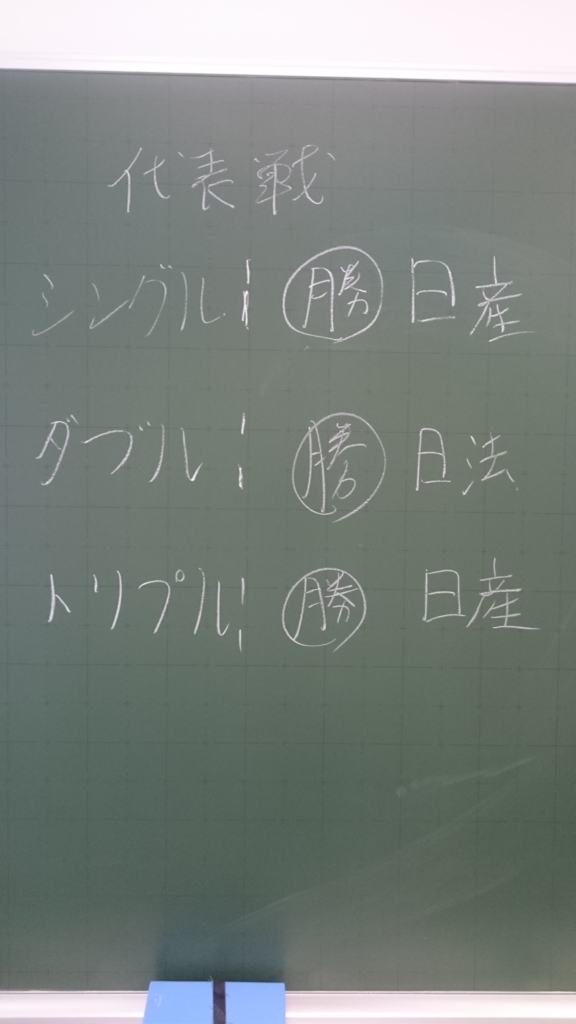 代表戦
シングル ¦ 勝 日産
ダブル ¦ 勝 日法
トリプル ¦ 勝 日産